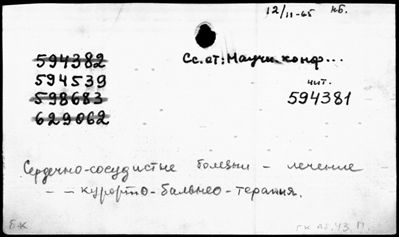 12/II-65 кб.
594382
594539
598683
629062
Сс. от: Научн. конф...
чит.
594381
Сердечно-сосудистые болезни – лечение
– – курорто-бальнео-терапия.
Б.К